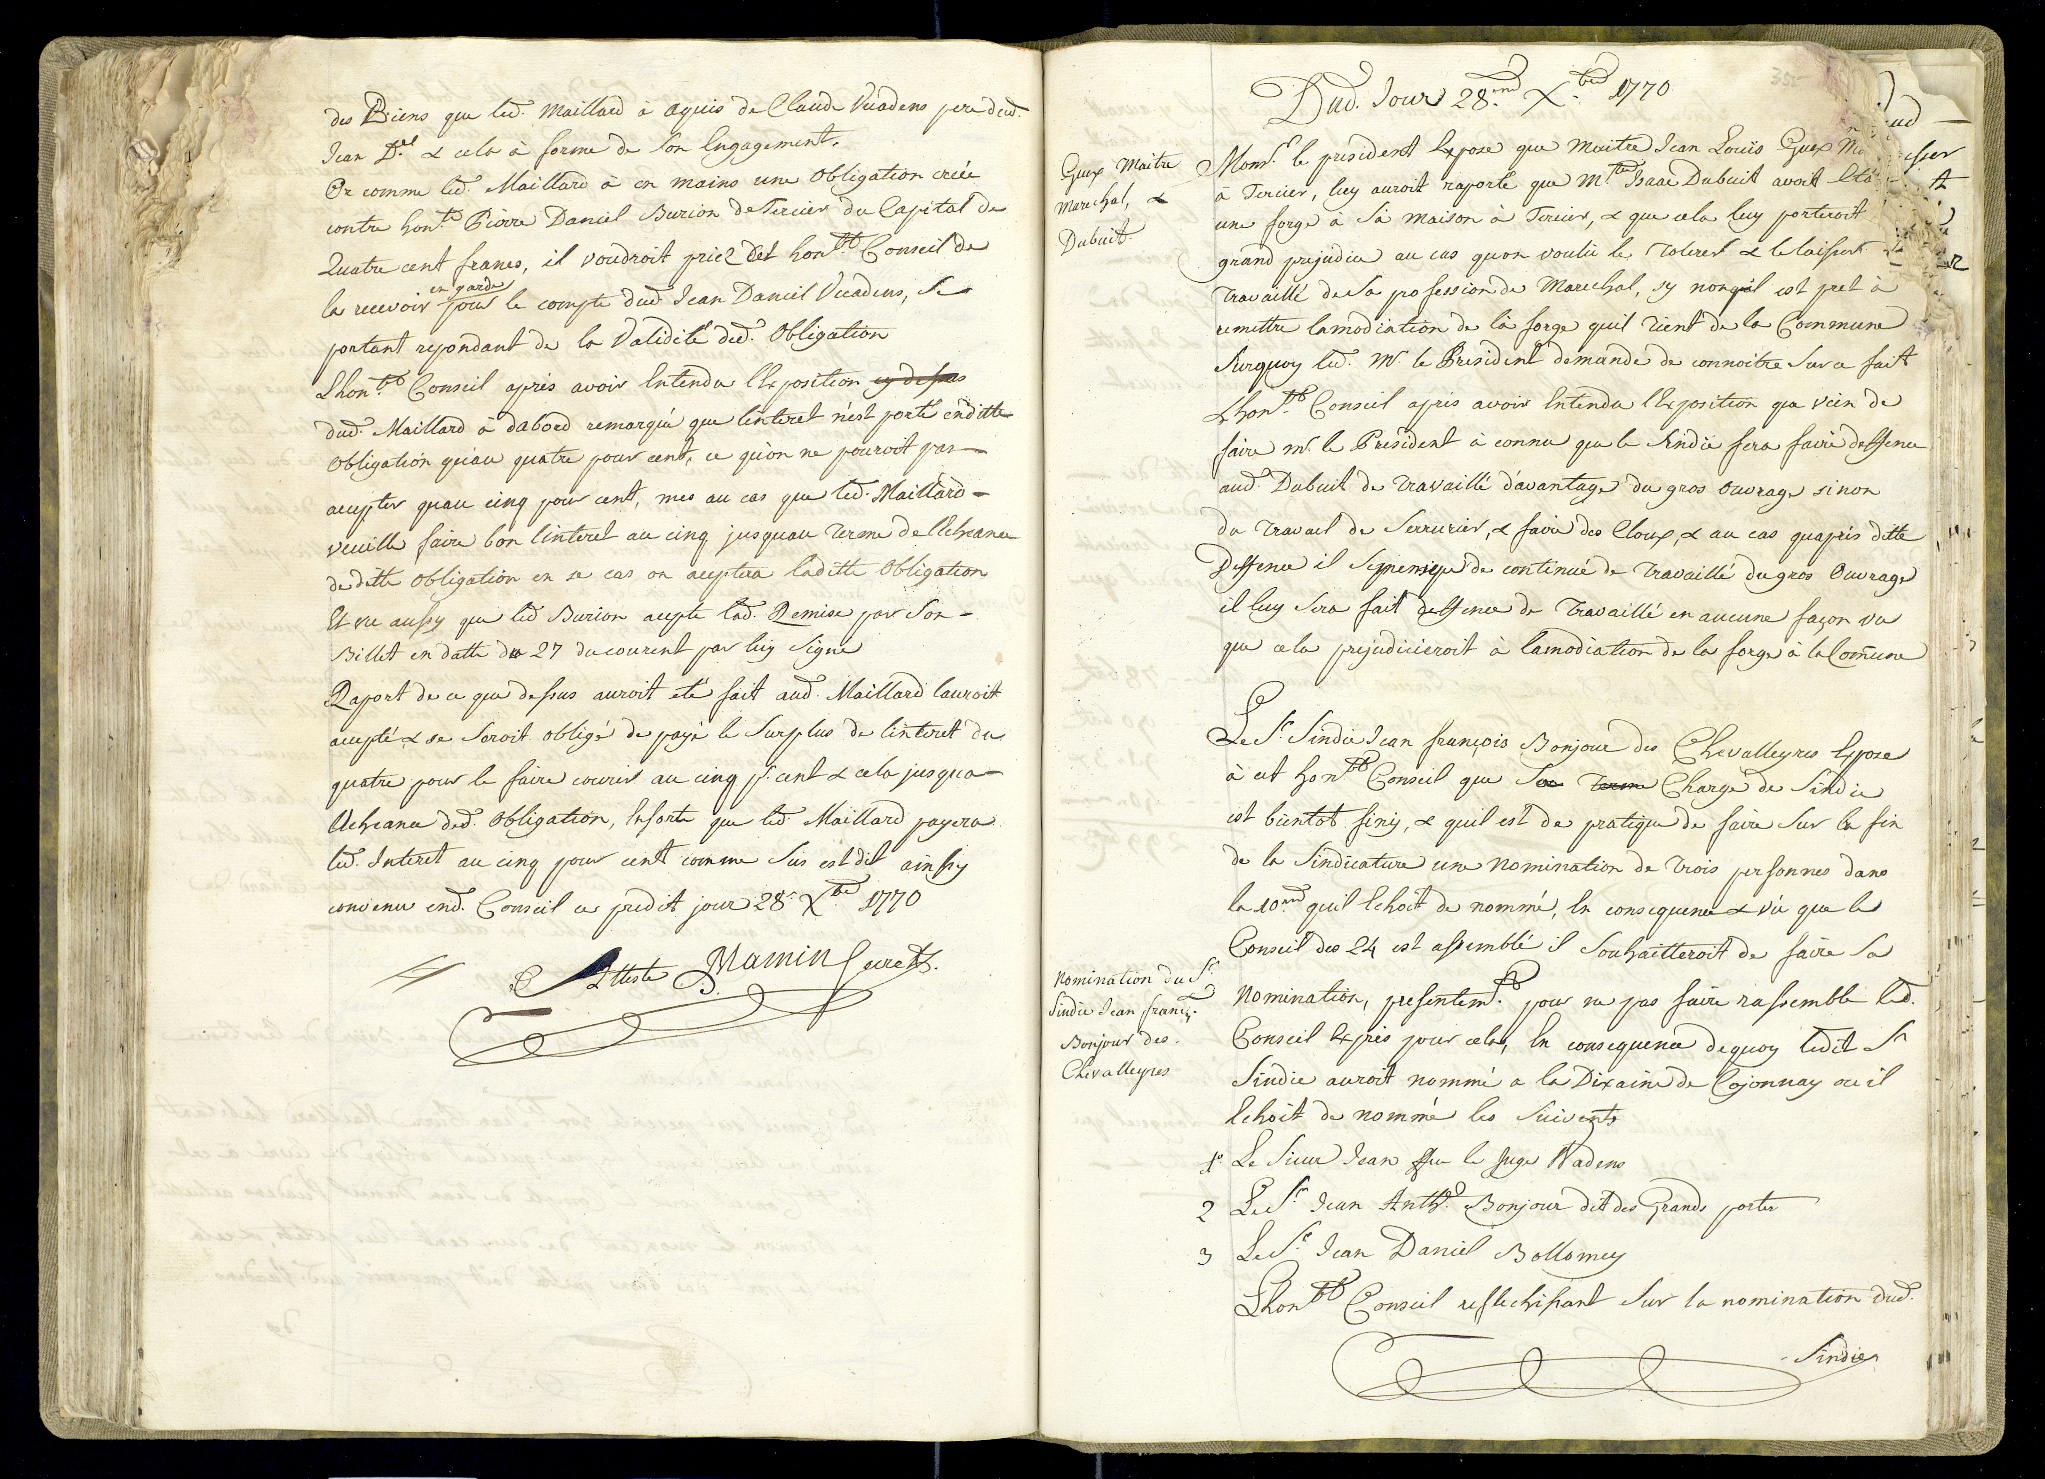 des Biens que led. Maillard à aquis de Claude Vuadens pere dud.
Jean D.el & cela à forme de son Engagement.
Or comme led. Maillard à en mains une obligation créée
contre hon.te Pierre Daniel Burion de Tercier du Capital de
Quatre cent francs, il voudroit prier cet hon.ble Conseil de
en garde
la recevoir pour le compte dud. Jean Daniel Vuadens, se
portant repondant de la Validité dud. Obligation
Lhon.ble Conseil après avoir Entendu l'Exposition cy dessus
dud. Maillard à dabord remarqué que linteret n'est porté en ditte
obligation qu'au quatre pour cent, ce qu'on ne pouroit pas
accepter quau cinq pour cent, mes au cas que led. Maillard
veuille faire bon linteret au cinq jusquau terme de l'Echeance
de ditte obligation en se cas on aceptera laditte obligation
Et vu aussy que led. Burion acepte lad. Remise par son
Billet en datte du 27 du courent par luy signé
Raport de ce que dessus auroit eté fait aud. Maillard lauroit
accepté & se seroit obligé de payé le surplus de linteret du
quatre pour le faire courir au cinq pr. cent & cela jusqua
Echeance dud. obligation, Ensorte que led. Maillard payera
led. Interet au cinq pour cent comme sus est dit ainsy
convenu end. Conseil ce predit jour 28e Xbre 1770
Atteste Mamin Secrett.
Dud. Jour 28.me Xbre 1770
Guex Maitre
Marechal, &
Dubuit.
Mons.r le president Expose que Maitre Jean Louis Guex
à Tercier, luy auroit raporté que M.tre Isaac Dubuit avoit
une forge à sa maison à Tercier, & que cela luy porteroit
grand prejudice au cas quon voulu le tolerer & le laisser
travaillé de sa profession de Marechal, sy non quil est pret à
remettre lamodiation de la forge quil tient de la Commune
Surquoy led. Mr le President demande de connoitre sur ce fait
Lhon.ble Conseil apres avoir Entendu l'Exposition que vien de
faire mr. le President à connu que le sindic fera faire deffence
aud. Dubuit de travaillé d'avantage du gros ouvrage sinon
du travail de serrurier, & faire des cloux, & au cas quapres ditte
Deffence il de continué de travaillé du gros ouvrage
il luy sera fait deffence de travaillé en aucune façon vu
que cela prejudicieroit à lamodiation de la forge à la Comune
Le Sr. Sindic Jean françois Bonjour des Chevalleyres Expose
à cet hon.ble Conseil que Sa terme Charge de Sindic
est bientot finy, & quil est de pratique de faire sur la fin
de la sindicature une nomination de trois personnes dans
la 10.ne quil Echoit de nommé, En consequence & vû que le
Conseil des 24 est assemblé il souhaitteroit de faire sa
Nomination du Sr.
Sindic Jean franç.s
Bonjour des
Chevalleyres
Nomination, presentem.t pour ne pas faire rassemble led.
Conseil Exprès pour cela, En consequence dequoy ledit Sr
Sindic auroit nommé a la Dixaine de Cojonnay ou il
Echoit de nommé les suivents
1º Le Sieur Jean feu le juge Vuadens
2 Le Sr. Jean Anth.e Bonjour dit des Grands portes
3 Le Sr. Jean Daniel Bollomey
Lhon.ble Conseil reflechissant sur la nomination dud.
Sindic